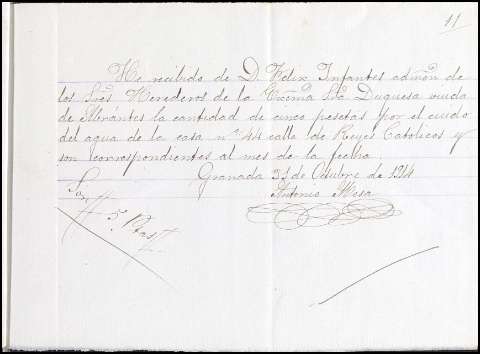 11
He recibido de D. Felix Infantes admon de
los Sres Herederos de la Excma Sra Duquesa viuda
de Abrantes la cantidad de cinco pesetas por el cuido
del agua de la casa nº 44 calle de Reyes Catolicos y
son correspondientes al mes de la fecha.
Granada 31 de Octubre de 1914
Antonio Mesa
Son
5. Ptas